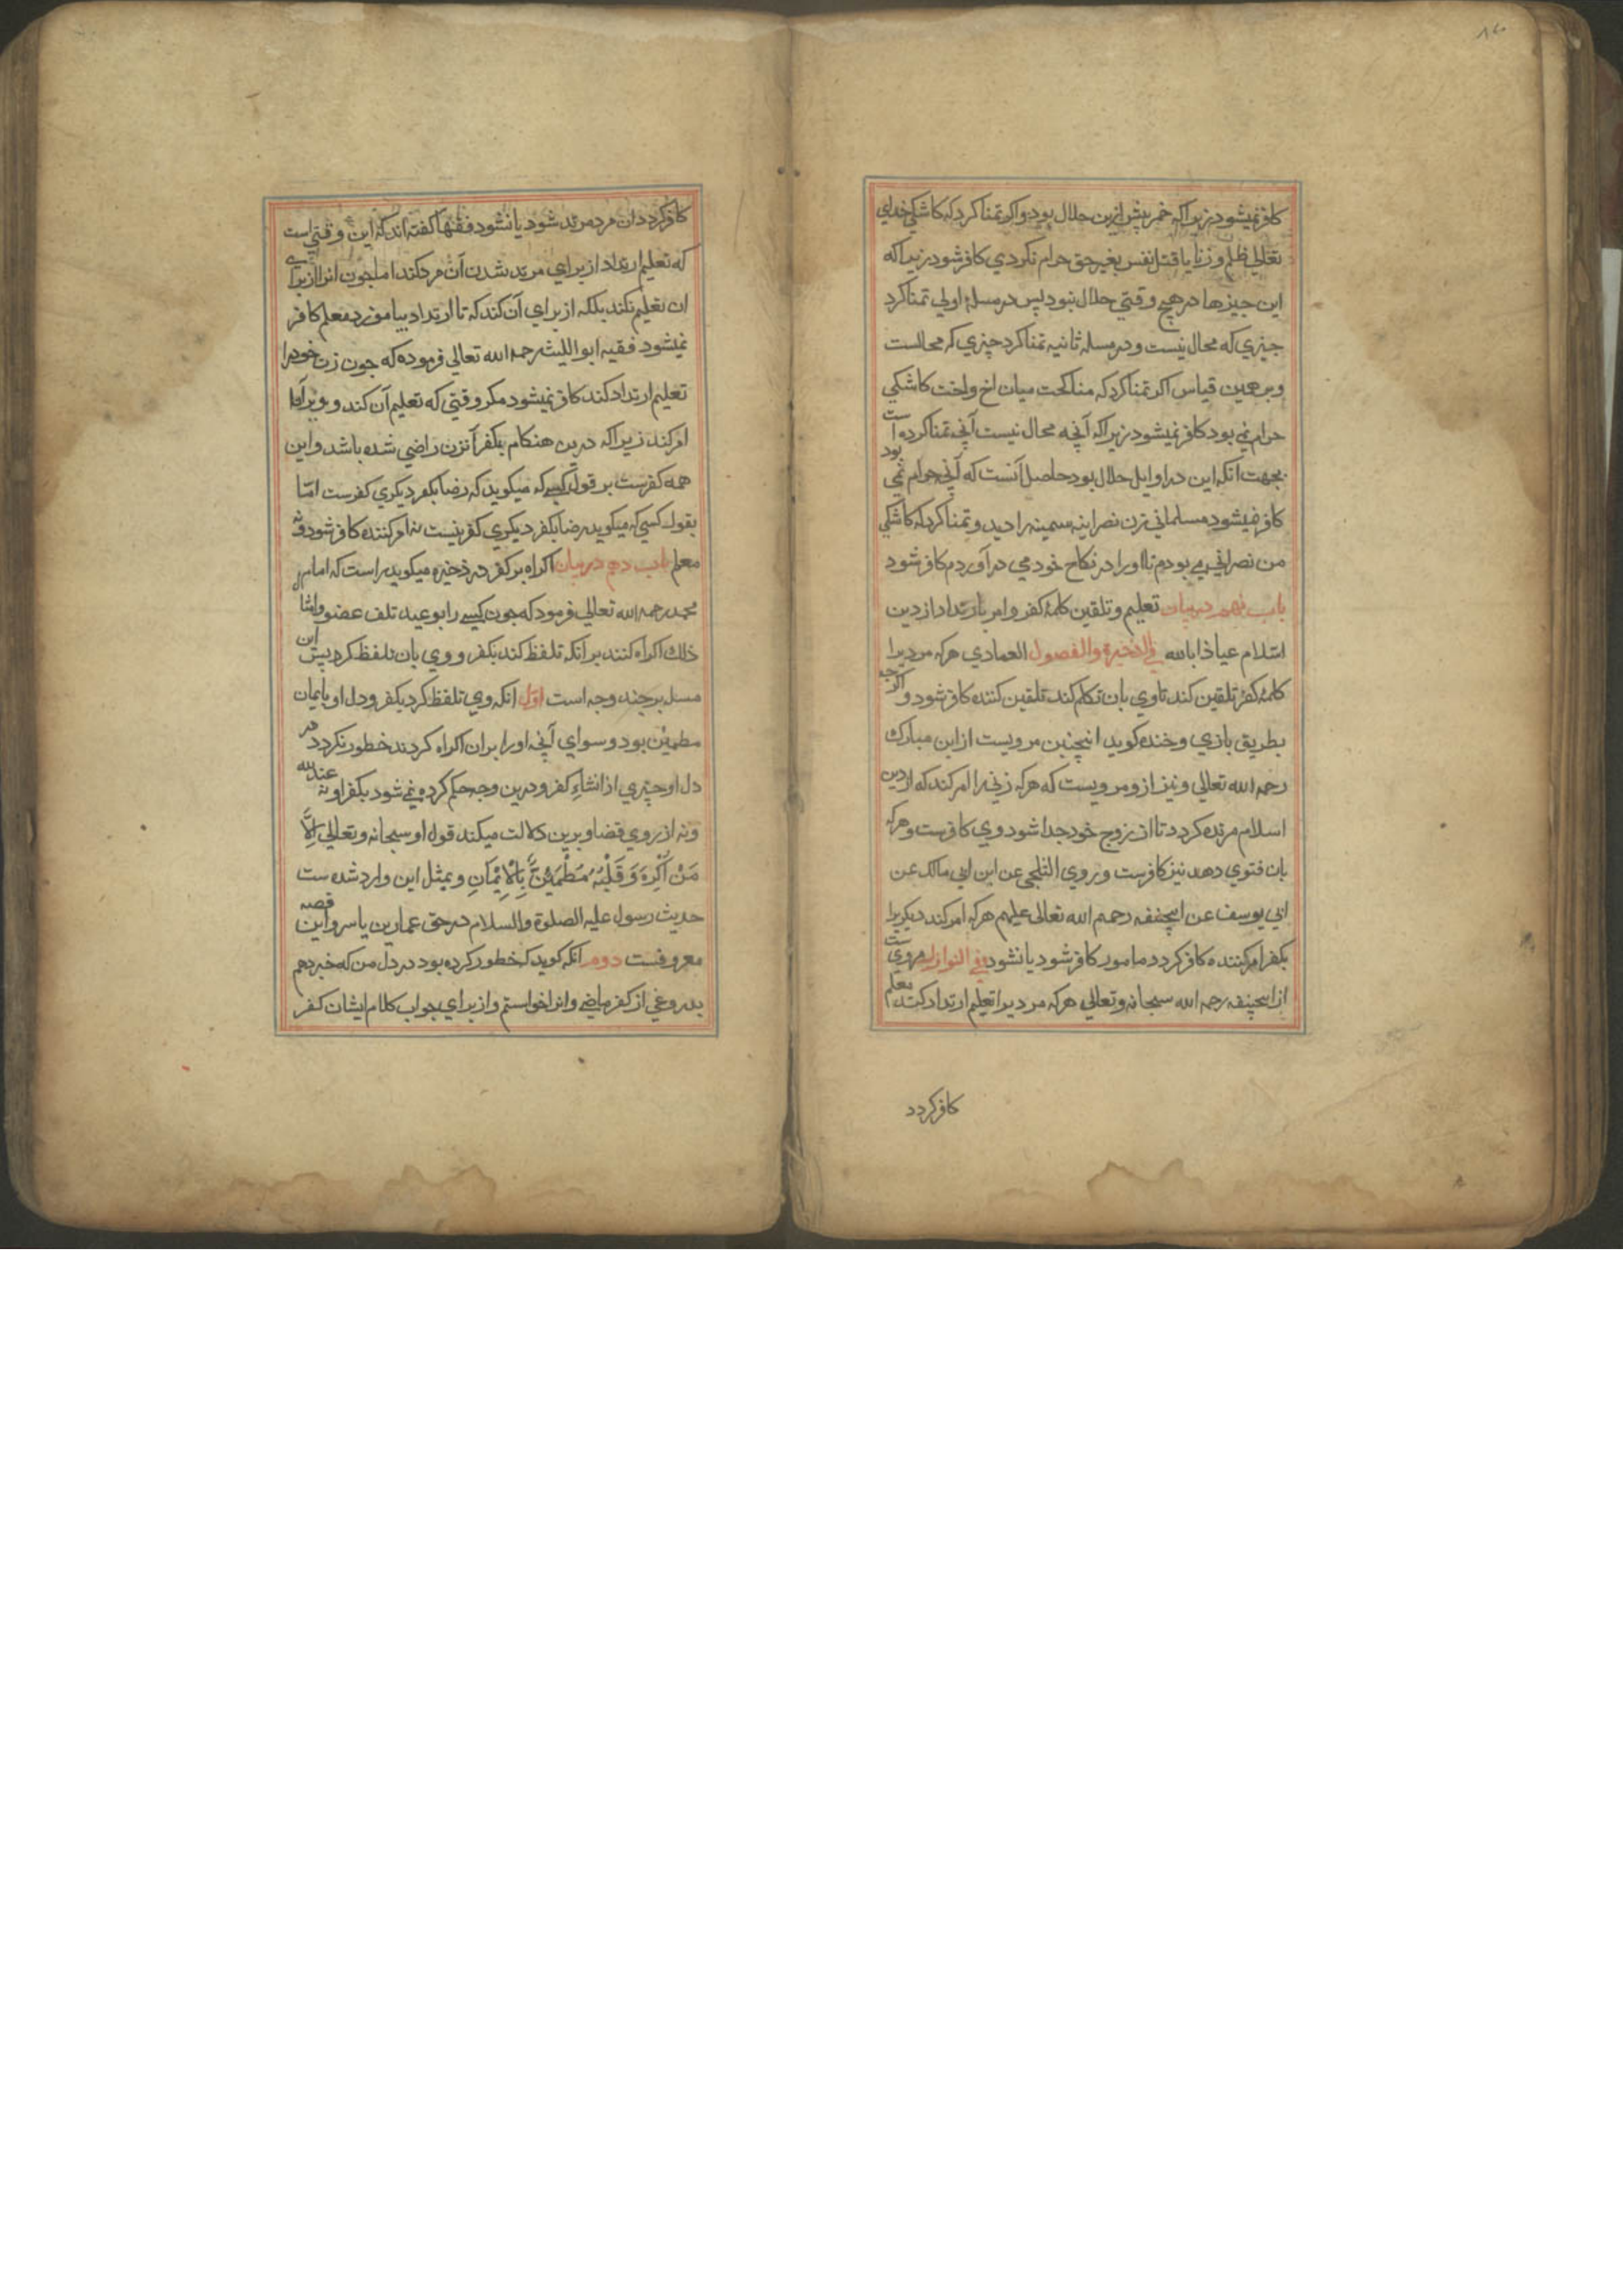 ۸۷
کافر نمیشود زیرا که خمر پیش ازین حلال بود و اکر تمنا کرد که کاشکي خدای
تعالي ظلم و زنا یا قتل نفس بغیر حق حرام نکردي کافر شود زیرا که
این چیزها در هیچ وقتي حلال نبود پس در مسلۀ اولي تمنا کرد
چیزي که محال نیست و در مسله ثانیه تمنا کرد چیزي که محالست
و بر همین قیاس اکر تمنا کرد که مناکحت میان اخ و اخت کاشکي
حرام نمي بود کافر نمیشود زیرا که آنچه محال نیست آنچه تمنا کرده است
بجهت انکه این در اوایل حلال بود حاصل آنست که آنچه حرام نمي بود
کافر نمیشود مسلماني زن نصرانیه سمینه را دید و تمنا کرد که کاشکي
من نصراني مي بودم تا او را در نکاح خود مي در آوردم کافر شود
باب نهم در بیان تعلیم و تلقین کلمۀ کفر و امر بارتداد از دین
اسلام عیاذا بالله في الذخیرة والفصول العمادي هر که مر دیرا
کلمۀ کفر تلقین کند تا وي بان تکلم کند تلقین کننده کافر شود و اکر چه
بطریق بازي و خنده کوید اینچنین مرویست از ابن مبارک
رحمه الله تعالي و نیز ازو مرویست که هر که زني را امر کند که از دین
اسلام مرتده کردد تا از زوج خود جدا شود وي کافرست و هر که
بان فتوي دهد نیز کافرست و روي الثلجي عن ابن ابي مالک عن
ابي یوسف عن ابیحنیفه رحمهم الله تعالی علیهم هر که امر کند دیکریرا
بکفر امر کننده کافر کردد مامور کافر شود یا نشود في النوازل مرویست
از ابیحنیفه رحمه الله سبحانه وتعالي هر که مر دیرا تعلیم ارتداد کند معلم
کافر کردد
کافر کردد ان مرد مرتد شود یا نشود فقها کفته اند که این وقتي است
که تعلیم ارتداد از براي مرتد شدن آن مرد کند اما چون انرا از براي
ان تعلیم نکند بلکه از براي آن کند که تا ارتداد بیاموزد معلم کافر
نمیشود فقیه ابو اللیث رحمه الله تعالي فرموده که چون زن خود را
تعلیم ارتداد کند کافر نمیشود مکر وقتي که تعلیم آن کند و ویرا
امر کند زیرا که درین هنکام بکفر آنزن راضي شده باشد و این
همه کفرست بر قول کسي که میکوید که رضا بکفر دیکري کفرست امّا
بقول کسي که میکوید رضا بکفر دیکري کفر نیست نه امر کننده کافر شود و نه
معلم باب دهم در بیان اکراه بر کفر در ذخیره میکوید است که امام
محمد رحمه الله تعالي فرمود که چون کسي را بوعید تلف عضو و امثال
ذلك اکراه کنند بر آنکه تلفظ کند بکفر و وي بان تلفظ کرد پس این
مسله بر چند وجه است اوّل انکه وي تلفظ کرد بکفر و دل او بایمان
مطمئن بود و سواي آنچه او را بران اکراه کردند خطور نکردد در
دل او چیزي از انشاءِ کفر و درین وجه حکم کرده نمي شود بکفر او نه عند الله
و نه از روي قضا و برین دلالت میکند قول او سبحانه وتعالي إِلَّا
مَنْ أُكْرِهَ وَقَلْبُهُ مُطْمَئِنٌّ بِالْإِيْمَانِ و بمثل این وارد شده ست
حدیث رسول علیه الصلوة والسلام در حق عمار بن یاسر و این قصه
معروفست دوم آنکه کوید که خطور کرده بود در دل من که خبر دهم
بدروغي از کفر ماضي و انرا خواستم و از براي جواب کلام ایشان کفر